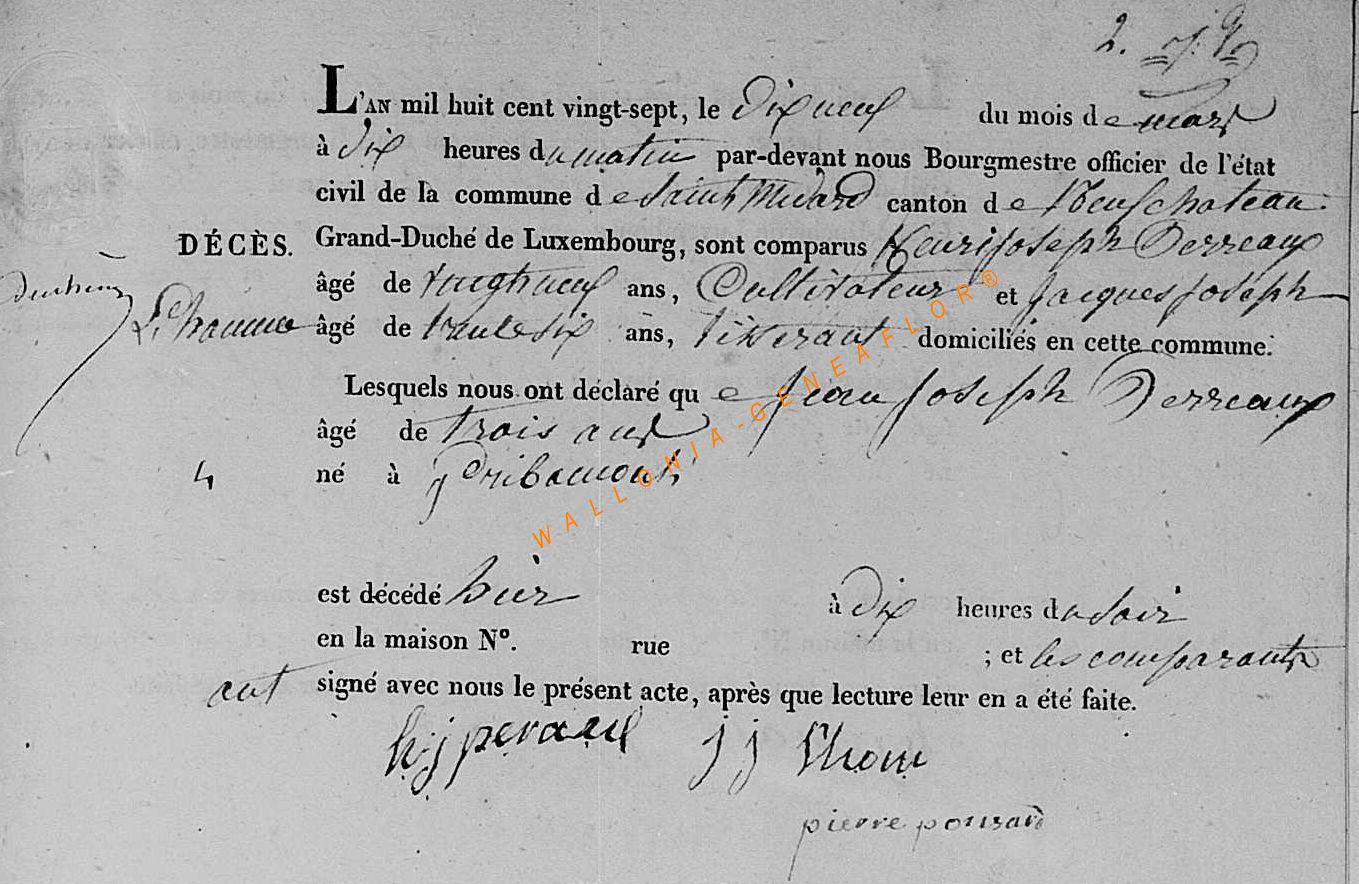 2.
L'AN mil huit cent vingt-sept, le dix neuf du mois de mars
à dix heures du matin par-devant nous Bourgmestre officier de l'état
civil de la commune de Saint Médard canton de Neufchateau.
DÉCÈS. Grand-Duché de Luxembourg, sont comparus Henri joseph Perreaux
âgé de vingt neuf ans, Cultivateur et jacques joseph
L'homme âgé de trente six ans, tisserant domiciliés en cette commune.
Lesquels nous ont déclaré que jean joseph Perreaux
âgé de trois ans
4 né à gribomont
est décédé hier à dix heures du soir
en la maison N°. rue ; et les comparants
ont signé avec nous le présent acte, après que lecture leur en a été faite.
h j peraux j j Lhom
pierre ponsard
WALLONIA-GENEAFLOR®